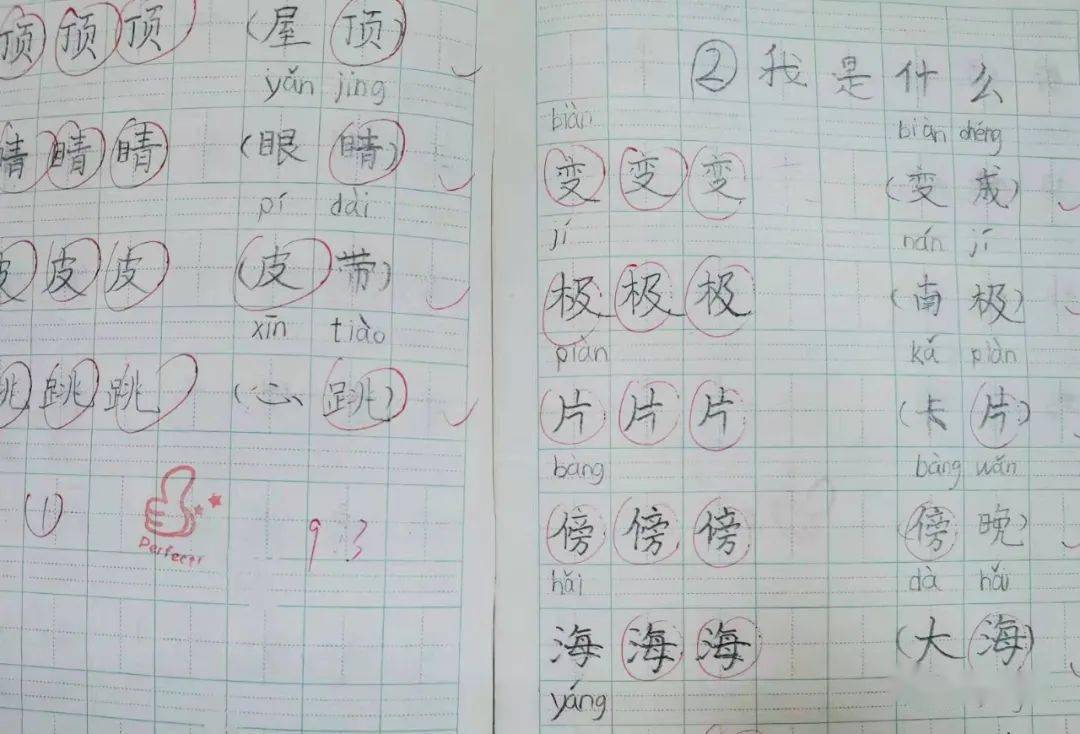 顶 顶 顶 (屋 顶)
yǎn jīng
睛 睛 睛 (眼 睛)
pí dài
皮 皮 皮 (皮 带)
xīn tiào
跳 跳 跳 (心 跳)
①
Perfect!
9.3
② 我 是 什 么
biàn biàn chéng
变 变 变 (变 成)
jí nán jí
极 极 极 (南 极)
piàn kǎ piàn
片 片 片 (卡 片)
bàng bàng wǎn
傍 傍 傍 (傍 晚)
hǎi dà hǎi
海 海 海 (大 海)
yáng